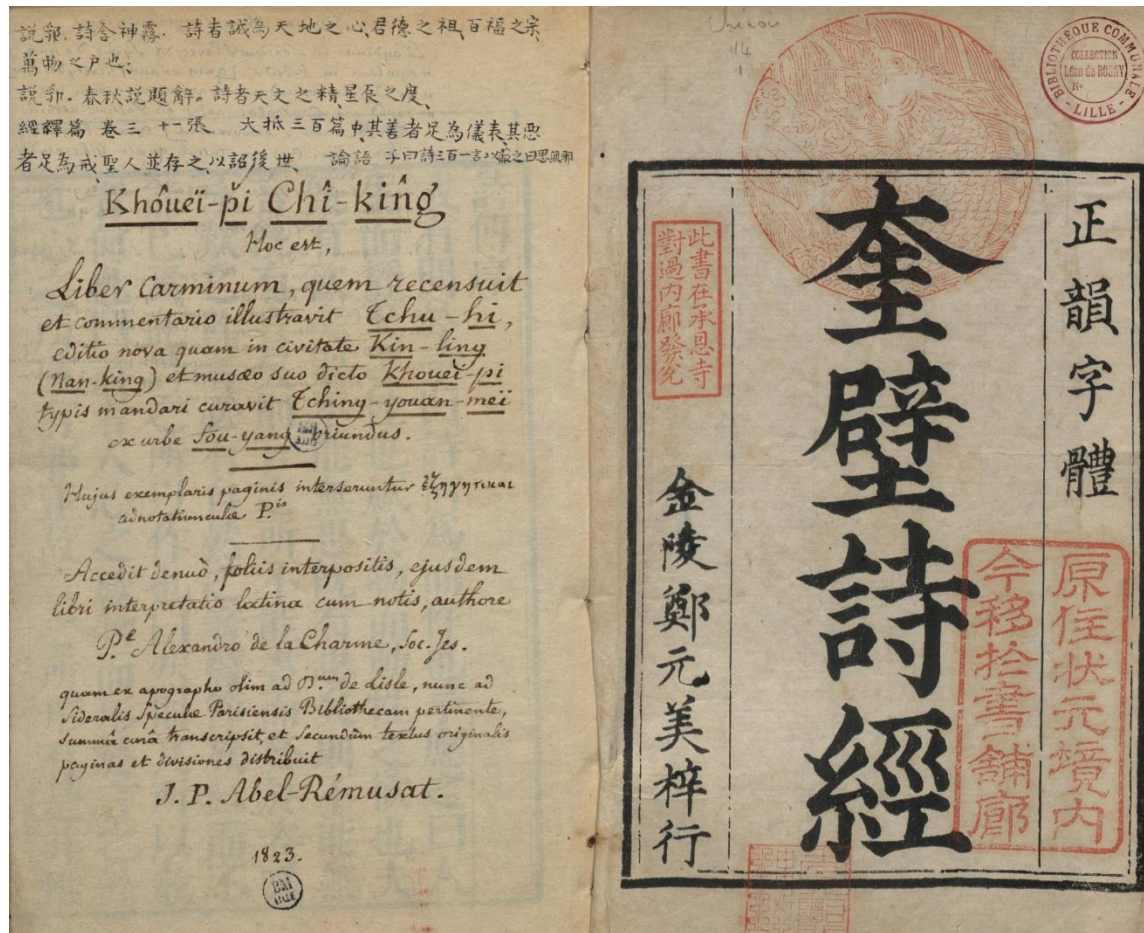 說郛. 詩含神霧. 詩者誠為天地之心君德之祖百福之宗
萬物之戶也.
說郛. 春秋說題辭. 詩者天文之精星辰之度
經繹篇 卷三 十一張 大抵三百篇中其善者足為儀表其惡
者足為戒聖人並存之以詔後世 論語 子曰詩三百一言以蔽之曰思無邪
Khôueï-pǐ Chî-kîng
Hoc est,
Liber Carminum, quem recensuit
et commentario illustravit Tchu-hi,
editio nova quam in civitate Kin-ling
(Nan-king) et musæo suo dicto Khoueï-pi
typis mandari curavit Tching-youan-meï
ex urbe Fou-yang oriundus.
Hujus exemplaris paginis interseruntur ἐξηγητικαι
adnotatiunculæ P.is
Accedit denuò, foliis interpositis, ejusdem
libri interpretatio latina cum notis, authore
P.e Alexandro de la Charme, Soc. Jes.
quam ex apographo olim ad D.num de Lisle, nunc ad
Sideralis Speculæ Parisiensis Bibliothecam pertinente,
summâ curâ transcripsit, et secundùm textus originalis
paginas et divisiones distribuit
J. P. Abel-Rémusat.
1823.
BM
LILLE
14
BIBLIOTHÈQUE COMMUNALE
COLLECTION
Léon de ROSNY
No
LILLE
正韻字體
奎壁詩經
金陵鄭元美梓行
此書在承恩寺
對過內廊發兌
原住狀元境內
今移於書鋪廊